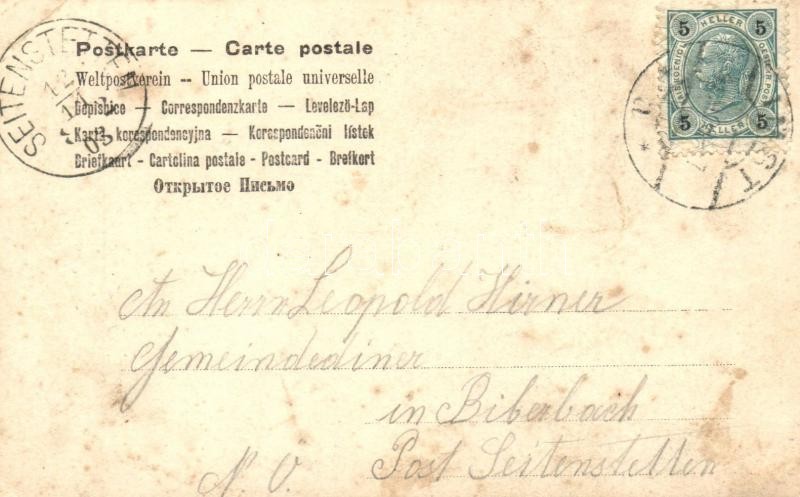 Postkarte — Carte postale
Weltpostverein -- Union postale universelle
Dopisnice — Correspondenzkarte — Levelező-Lap
Karta korespondencyjna — Korespondenční lístek
Briefkaart - Cartolina postale - Postcard - Brefkort
Открытое Письмо
SEITENSTETTEN
12
11
03
5 HELLER 5
5 HELLER 5
An Herrn Leopold Hirner
Gemeindediner
in Biberbach
Post Seitenstetten
N. O.